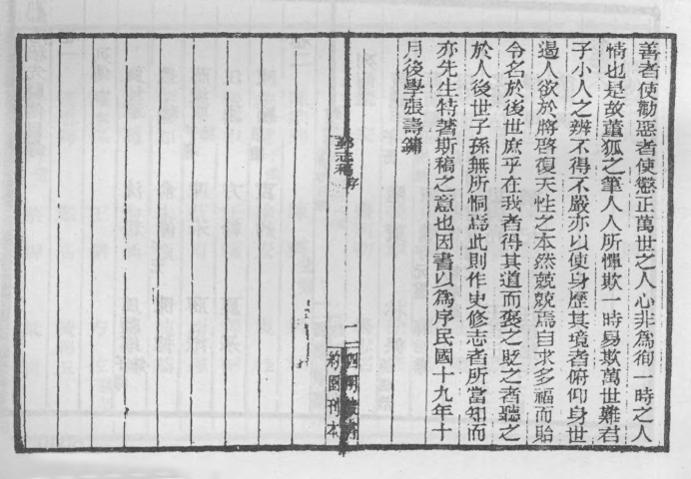 善者使勸惡者使懲正萬世之人心非為徇一時之人
情也是故董狐之筆人人所憚欺一時易欺萬世難君
子小人之辨不得不嚴亦以使身歷其境者俯仰身世
遏人欲於將啓復天性之本然兢兢焉自求多福而貽
令名於後世庶乎在我者得其道而褒之貶之者聽之
於人後世子孫無所恫焉此則作史修志者所當知而
亦先生特著斯稿之意也因書以為序民國十九年十
月後學張壽鏞
鄞志稿序
二
四明叢書
約園刊本